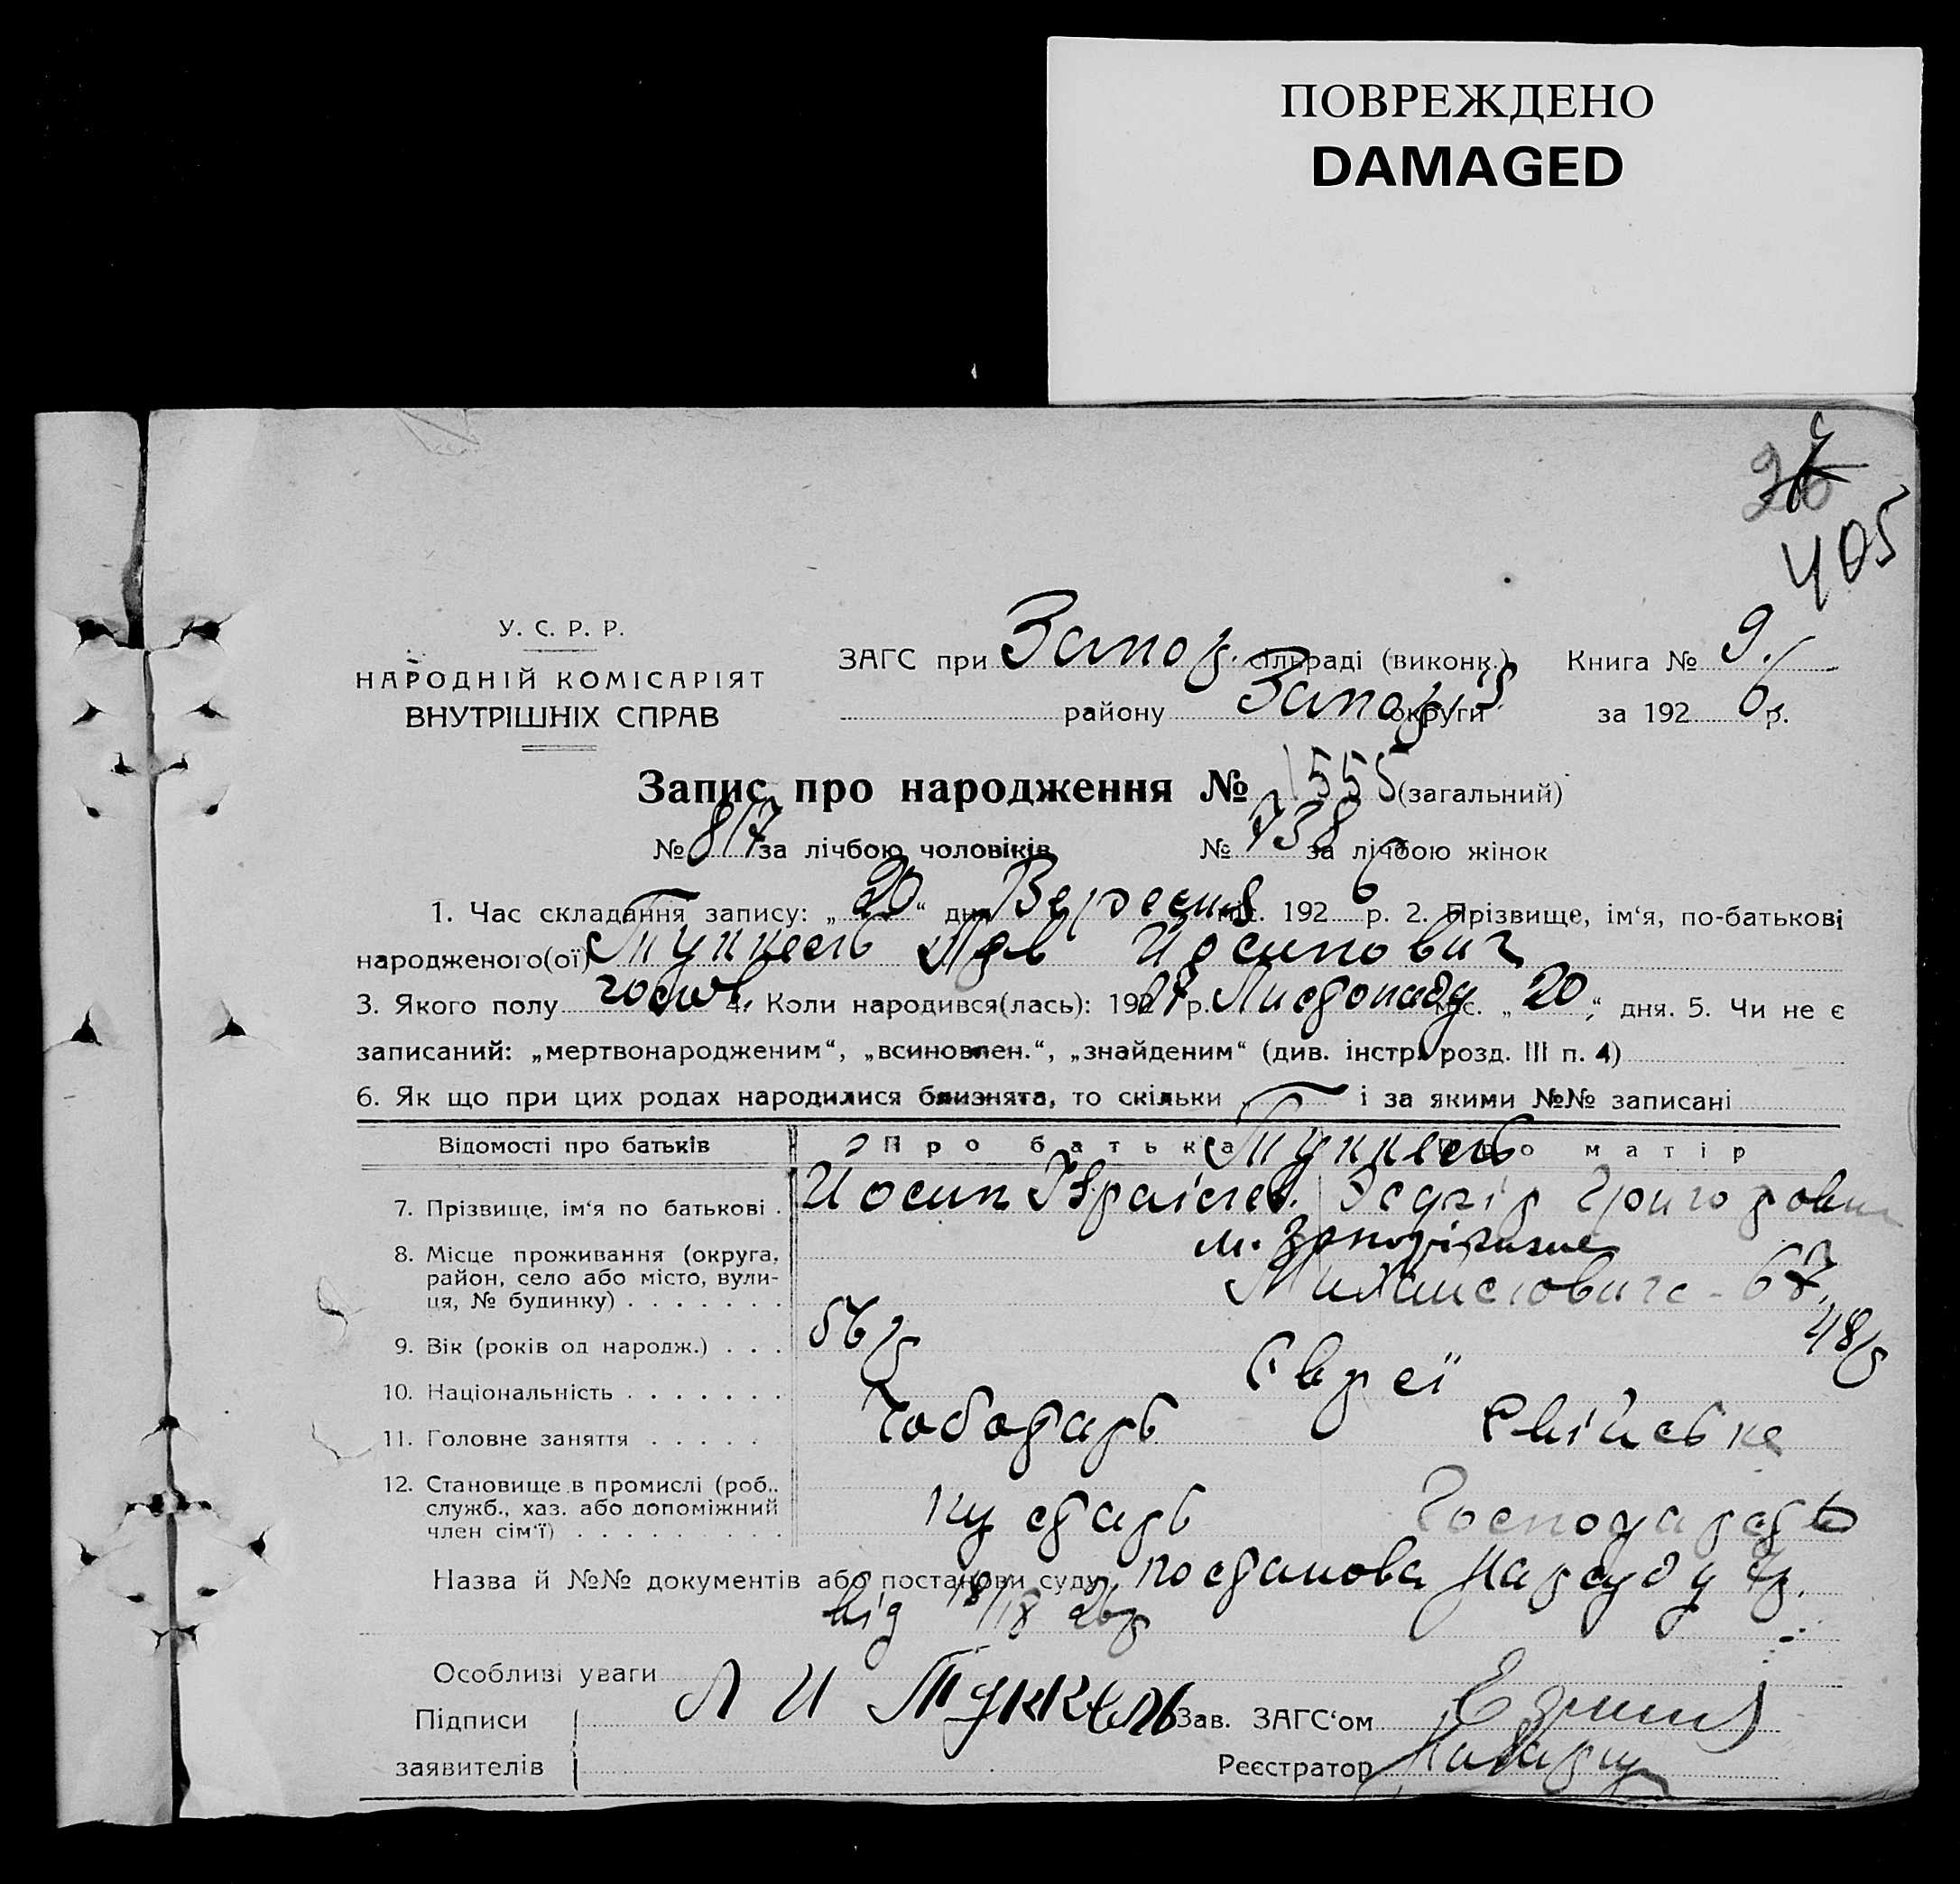 ПОВРЕЖДЕНО
DAMAGED
405
У. С. Р. Р.
НАРОДНІЙ КОМІСАРІЯТ
ВНУТРІШНІХ СПРАВ
ЗАГС при Запор. сільраді (виконк.) Книга № 9.
району Запоріз округи за 192 6 р.
Запис про народження № 1555 (загальний)
№ 817 за лічбою чоловіків № 738 за лічбою жінок
1. Час складання запису: „ 20 “ дня Вересня міс. 192 6 р. 2. Прізвище, ім'я, по-батькові
народженого(ої) Туккель Йосипович
3. Якого полу 4. Коли народився(лась): 19 р. Листопаду міс. „ 20 “ дня. 5. Чи не є
записаний: „мертвонародженим“, „всиновлен.“, „знайденим“ (див. інстр. розд. III п. 4)
6. Як що при цих родах народилися близнята, то скільки і за якими №№ записані
Відомості про батьків Про батька Про матір
Туккель
7. Прізвище, ім'я по батькові Йосип Ізраілев. Эсфір Григоровна
8. Місце проживання (округа, район, село або місто, вулиця, № будинку) м. Запоріжжє
67
9. Вік (років од народж.) 56 р 48 р
10. Національність Євреї
11. Головне заняття Чоботарь Свійське
12. Становище в промислі (роб., служб., хаз. або допоміжний член сім'ї) кустарь Господарсть
Назва й №№ документів або постанови суду Постанова Нарсуду
від
Особливі уваги
Підписи заявителів Л И Туккель Зав. ЗАГС'ом
Реєстратор